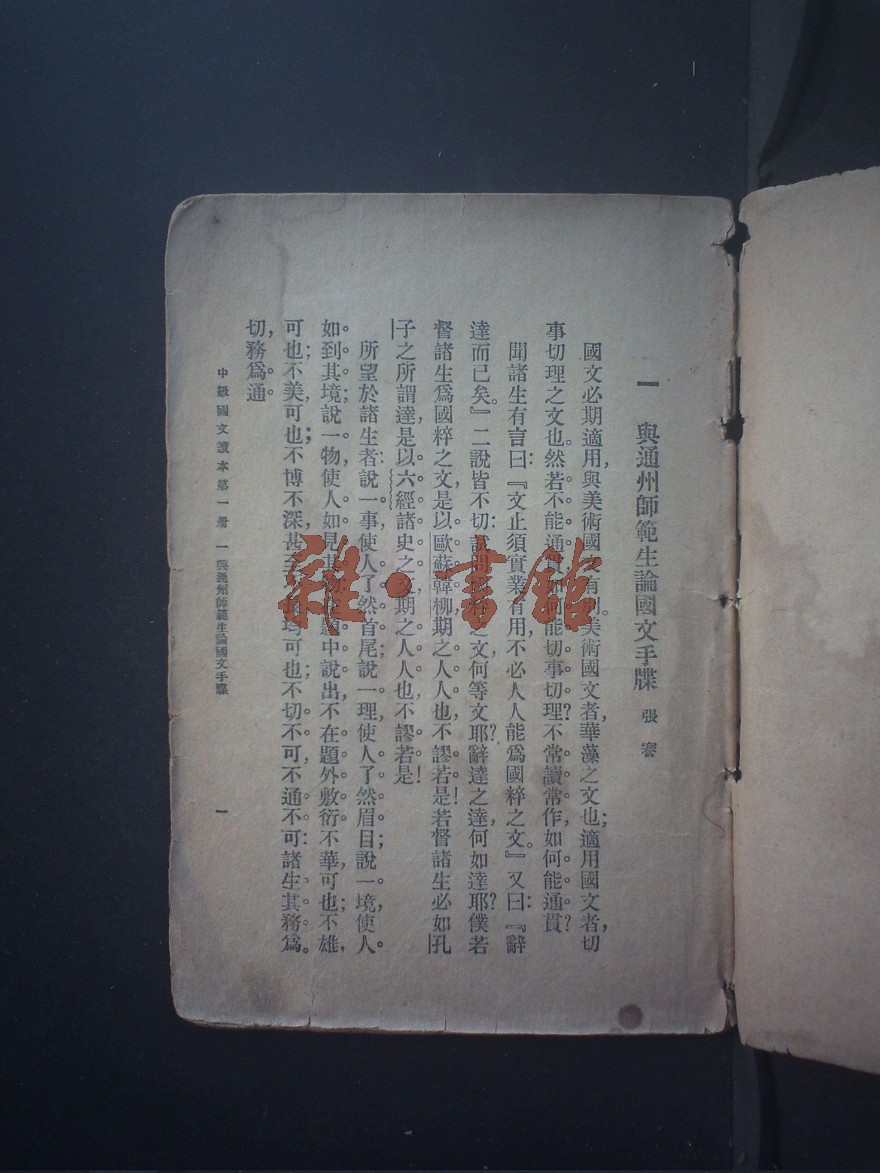 一 與通州師範生論國文手牒 張謇
國文必期適用,與美術國文有別美術國文者,華藻之文也;適用國文者,切
事切理之文也。然若不能通貫,如何能切事切理?不常讀常作,如何能通貫?
聞諸生有言曰:『文止須實業有用,不必人人能爲國粹之文。』又曰:『辭
達而已矣。』二說皆不切試問國粹之文何等文耶?辭達之達,何如達耶?僕若
督諸生爲國粹之文,是以歐蘇韓柳期之人人也,不謬若是!若督諸生必如孔
子之所謂達,是以六經諸史之文期之人人也,不謬若是!
所望於諸生者:說一事,使人了然首尾;說一理,使人了然眉目;說一境,使人
如到其境;說一物,使人如見其物;題中說出,不在題外敷衍。不華可也;不雄,
可也;不美,可也;不博不深,甚至可也;不切,不可,不通,不可:諸生其務爲
切,務爲通。
中級國文讀本第一冊 一 與通州師範生論國文手牒
一
雜·書館